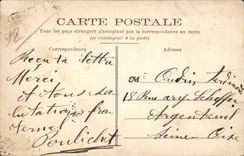 CARTE POSTALE
Tous les pays étrangers n'acceptent pas la correspondance au recto
(se renseigner à la poste)
Correspondance
Adresse
Reçu ta lettre
Merci
et nous sa
lutations fra
ternel
M Oudin Ferdinand
18 Rue ary Scheffer
Argenteuil
Seine Oise